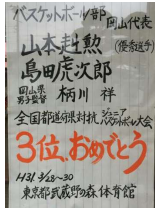 バスケットボール部 岡山代表
山本赳勲 (優秀選手)
島田虎次郎
岡山県男子監督 柄川 祥
全国都道府県対抗ジュニアバスケットボール大会
3位、おめでとう
H31 3/28~30
東京都武蔵野の森体育館